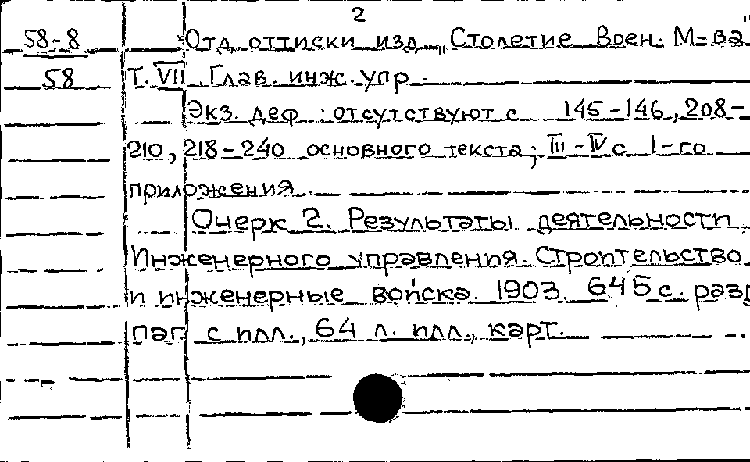 2
58-8 Отд. оттиски изд. „Столетие Воен. М-ва"
58 Т. VII Глав. инж. упр.
Экз. деф.: отсутствуют с 145-146, 208-
210, 218-240 основного текста; III-IV с 1-го
приложения.
Очерк 2. Результаты деятельности
Инженерного управления. Строительство
и инженерные войска. 1903. 645 с. разд.
паг. с илл., 64 л. илл., карт.